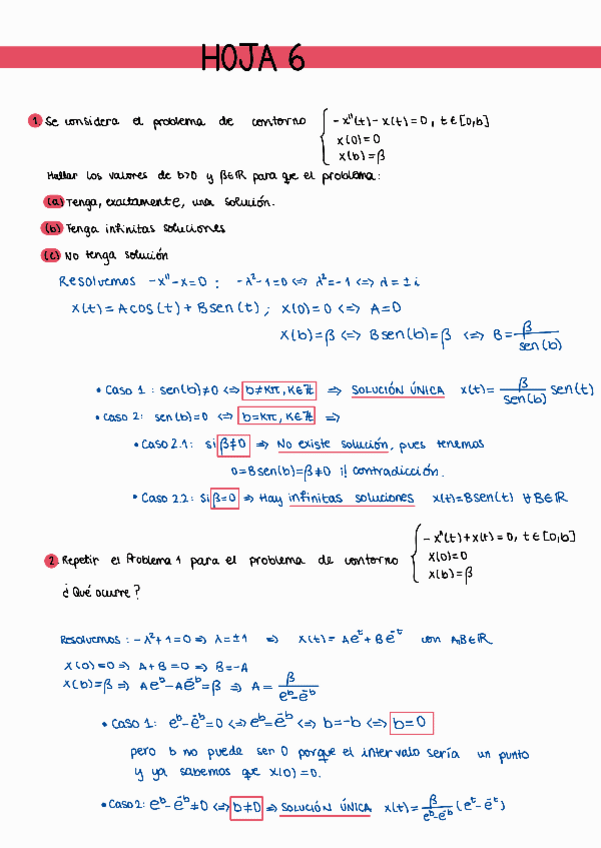 HOJA 6
1 Se considera el problema de contorno { -x''(t)-x(t)=0, t∈[0,b]
x(0)=0
x(b)=β
Hallar los valores de b>0 y β∈ℝ para que el problema:
(a) Tenga, exactamente, una solución.
(b) Tenga infinitas soluciones
(c) No tenga solución
Resolvemos -x''-x=0 : -λ²-1=0 <=> λ²=-1 <=> λ=±i
x(t)=Acos(t)+Bsen(t) ; x(0)=0 <=> A=0
x(b)=β <=> Bsen(b)=β <=> B=β/sen(b)
• Caso 1 : sen(b)≠0 <=> b≠kπ, k∈ℤ => SOLUCIÓN ÚNICA x(t)= β/sen(b) sen(t)
• Caso 2: sen(b)=0 <=> b=kπ, k∈ℤ =>
• Caso 2.1: si β≠0 => No existe solución, pues tenemos
0=Bsen(b)=β≠0 ¡! contradicción.
• Caso 2.2: Si β=0 => Hay infinitas soluciones x(t)=Bsen(t) ∀B∈ℝ
2 Repetir el Problema 1 para el problema de contorno { -x''(t)+x(t)=0, t∈[0,b]
x(0)=0
x(b)=β
¿Qué ocurre?
Resolvemos : -λ²+1=0 => λ=±1 => x(t)= Ae^t+Be^-t con A,B∈ℝ
x(0)=0 => A+B=0 => B=-A
x(b)=β => Ae^b-Ae^-b=β => A= β/(e^b-e^-b)
• Caso 1: e^b-e^-b=0 <=> e^b=e^-b <=> b=-b <=> b=0
pero b no puede ser 0 porque el intervalo sería un punto
y ya sabemos que x(0)=0.
• Caso 2: e^b-e^-b≠0 <=> b≠0 => SOLUCIÓN ÚNICA x(t)= β/(e^b-e^-b) (e^t-e^-t)